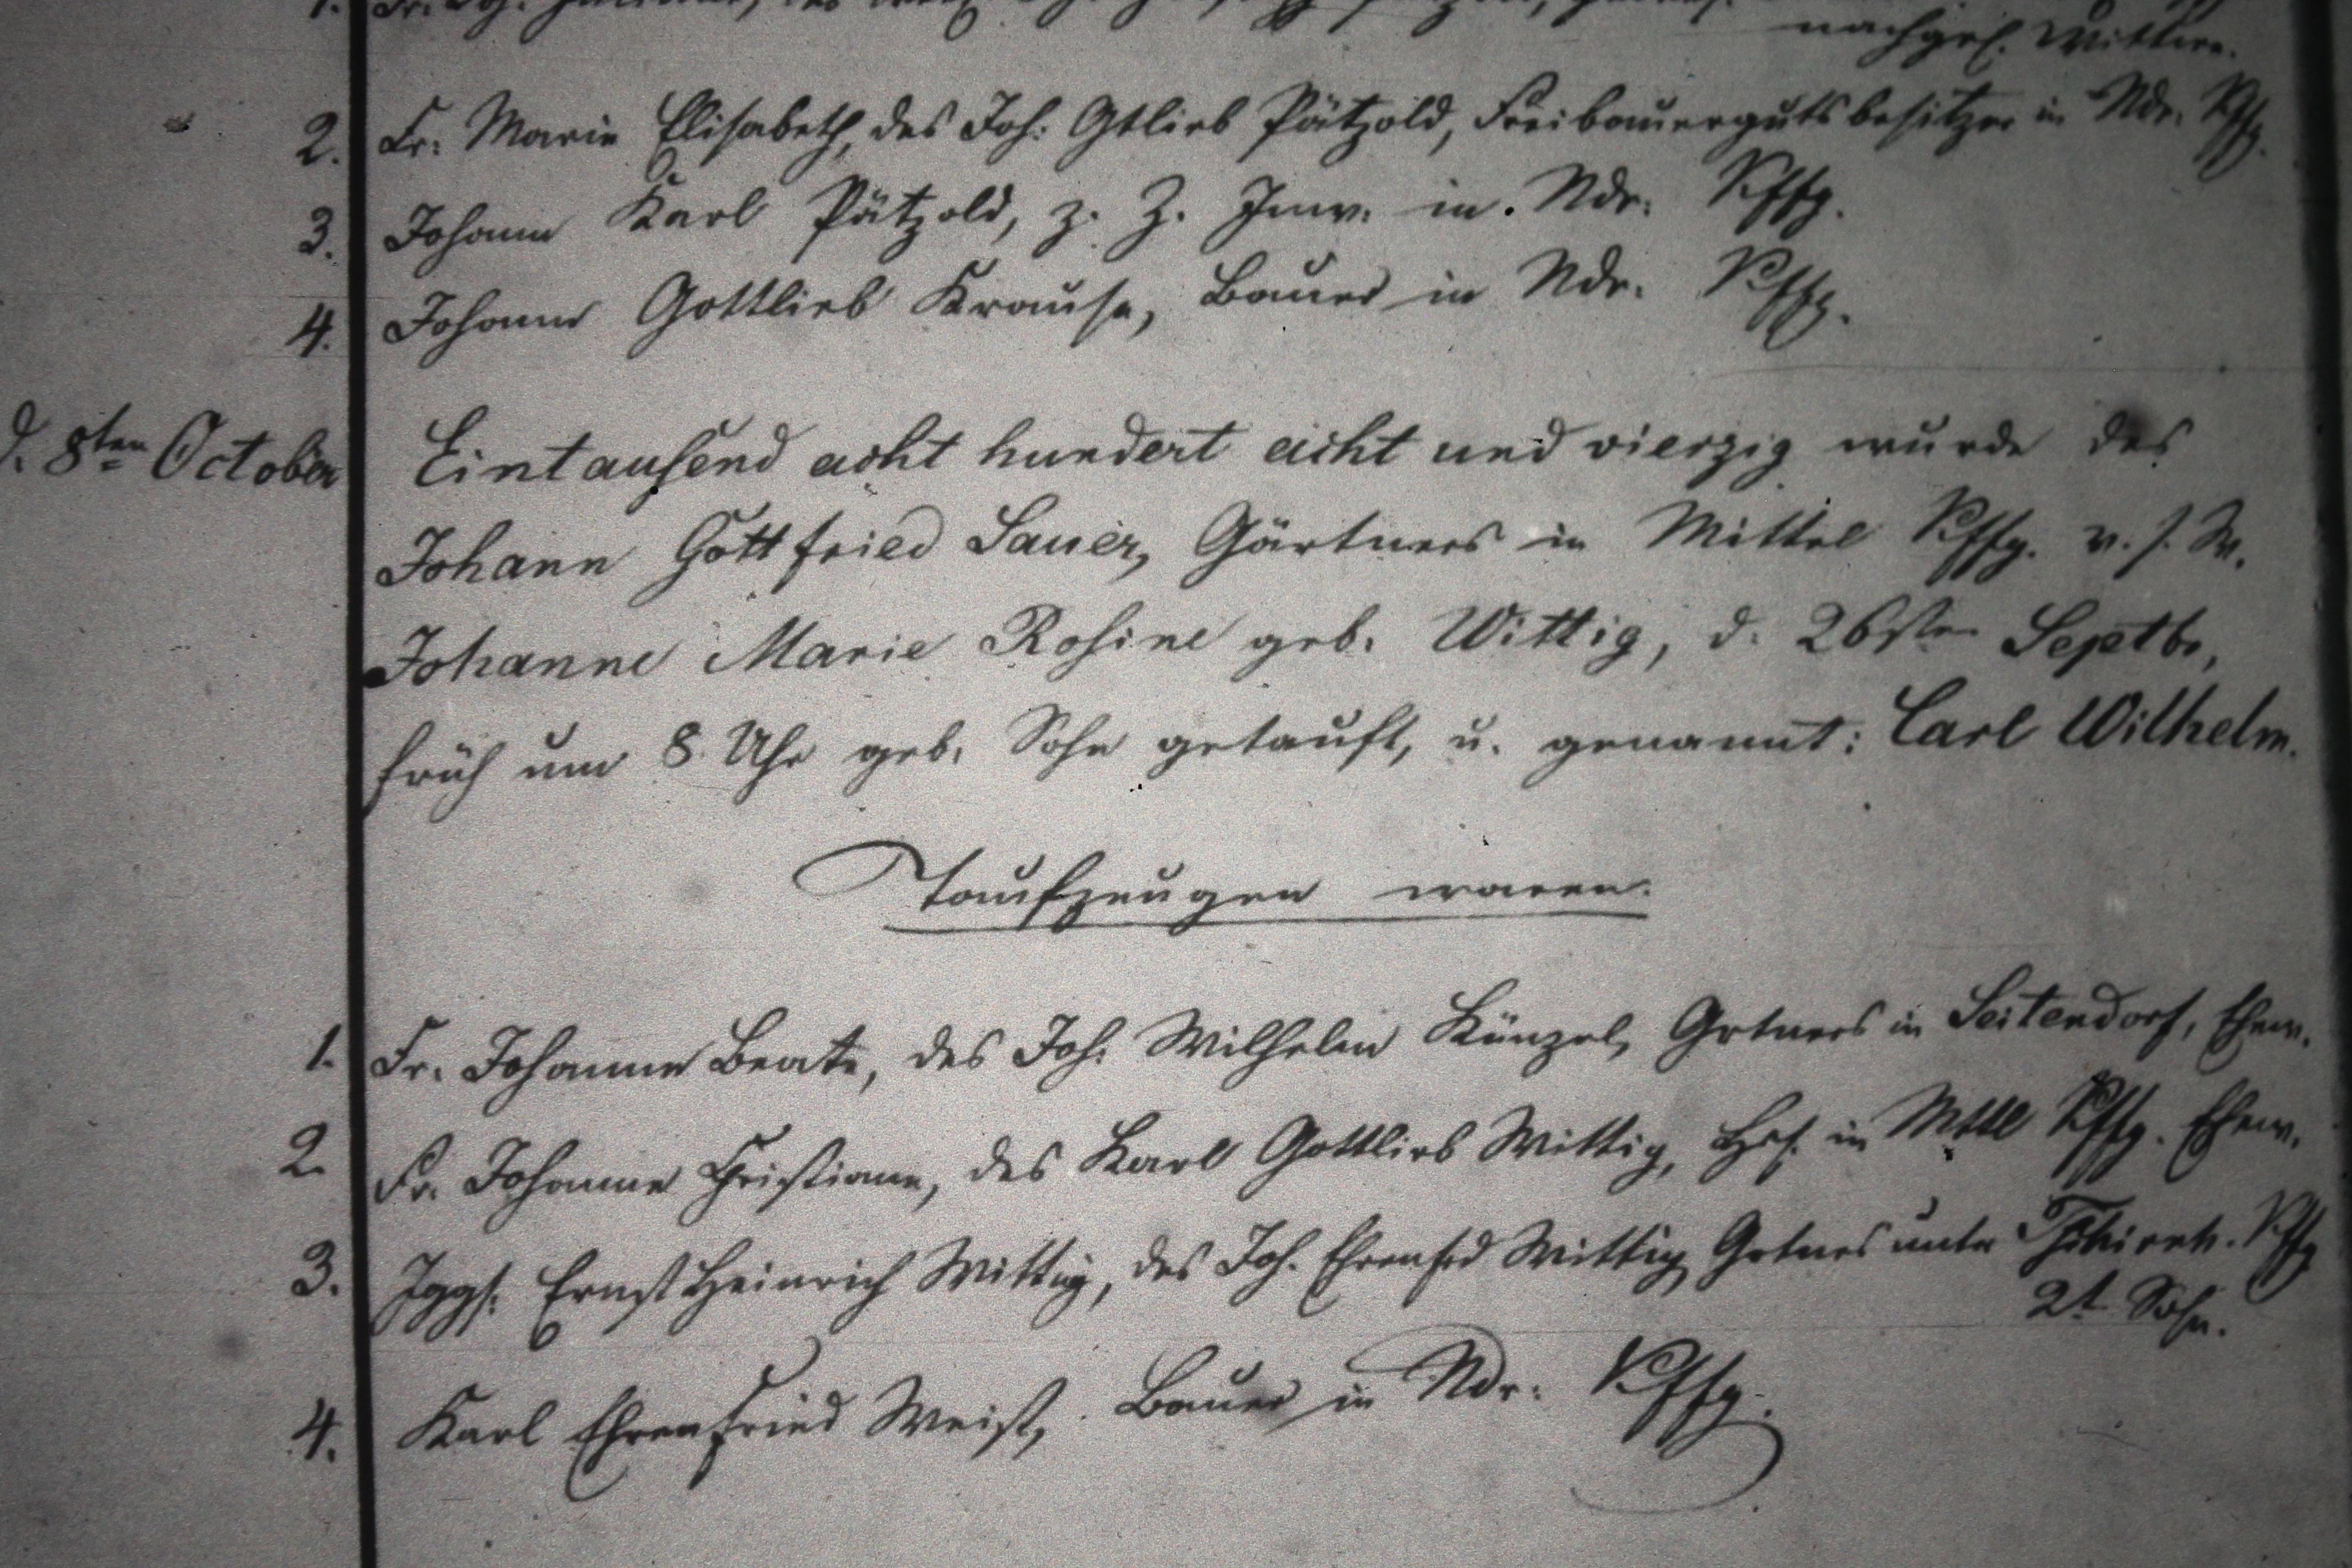 nachgel. Wittwe.
2. Fr. Marie Elisabeth, des Joh: Gtlieb Pätzold, Freibauergutsbesitzer in Ndr. Kffg.
3. Johann Karl Pätzold, z. Z. Inw. in. Ndr: Kffg.
4. Johann Gottlieb Krause, Bauer in Ndr. Kffg.
d. 8ten October Eintausend acht hundert acht und vierzig wurde des
Johann Gottfried Sauer, Gärtners in Mittel Kffg. v. s. W.
Johanne Marie Rosine geb. Wittig, d. 26sten Septbr,
früh um 8 Uhr geb. Sohn getauft, u. genannt: Carl Wilhelm.
Taufzeugen waren.
1. Fr. Johanne Beate, des Joh: Wilhelm Künzel, Grtners in Seitendorf, Ehew.
2. Fr. Johanne Christiane, des Karl Gottlieb Wittig, Hsl. in Mttl Kffg. Ehew.
3. Jggs. Ernst Heinrich Wittig, des Joh. Ehrenfrd Wittig Grtners unter Kffg
2t Sohn.
4. Karl Ehrenfried Weist, Bauer in Ndr: Kffg.